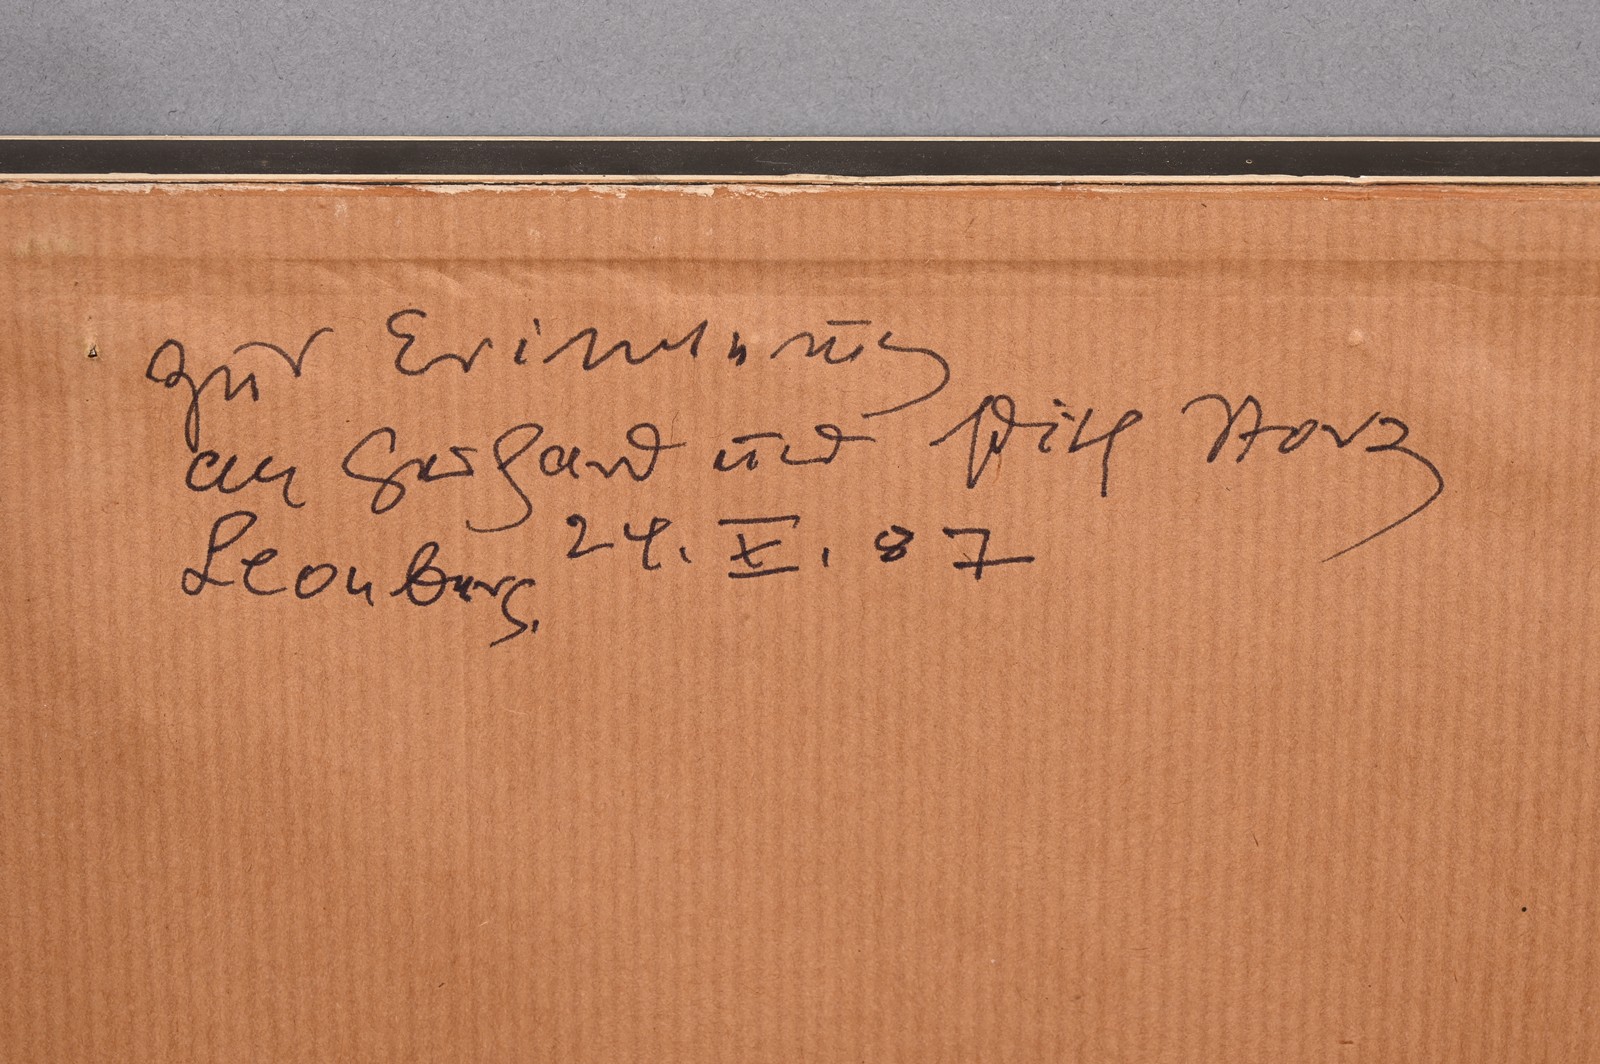 zur Erinnerung
an Gerhard und Storz
Leonberg. 24. X. 87